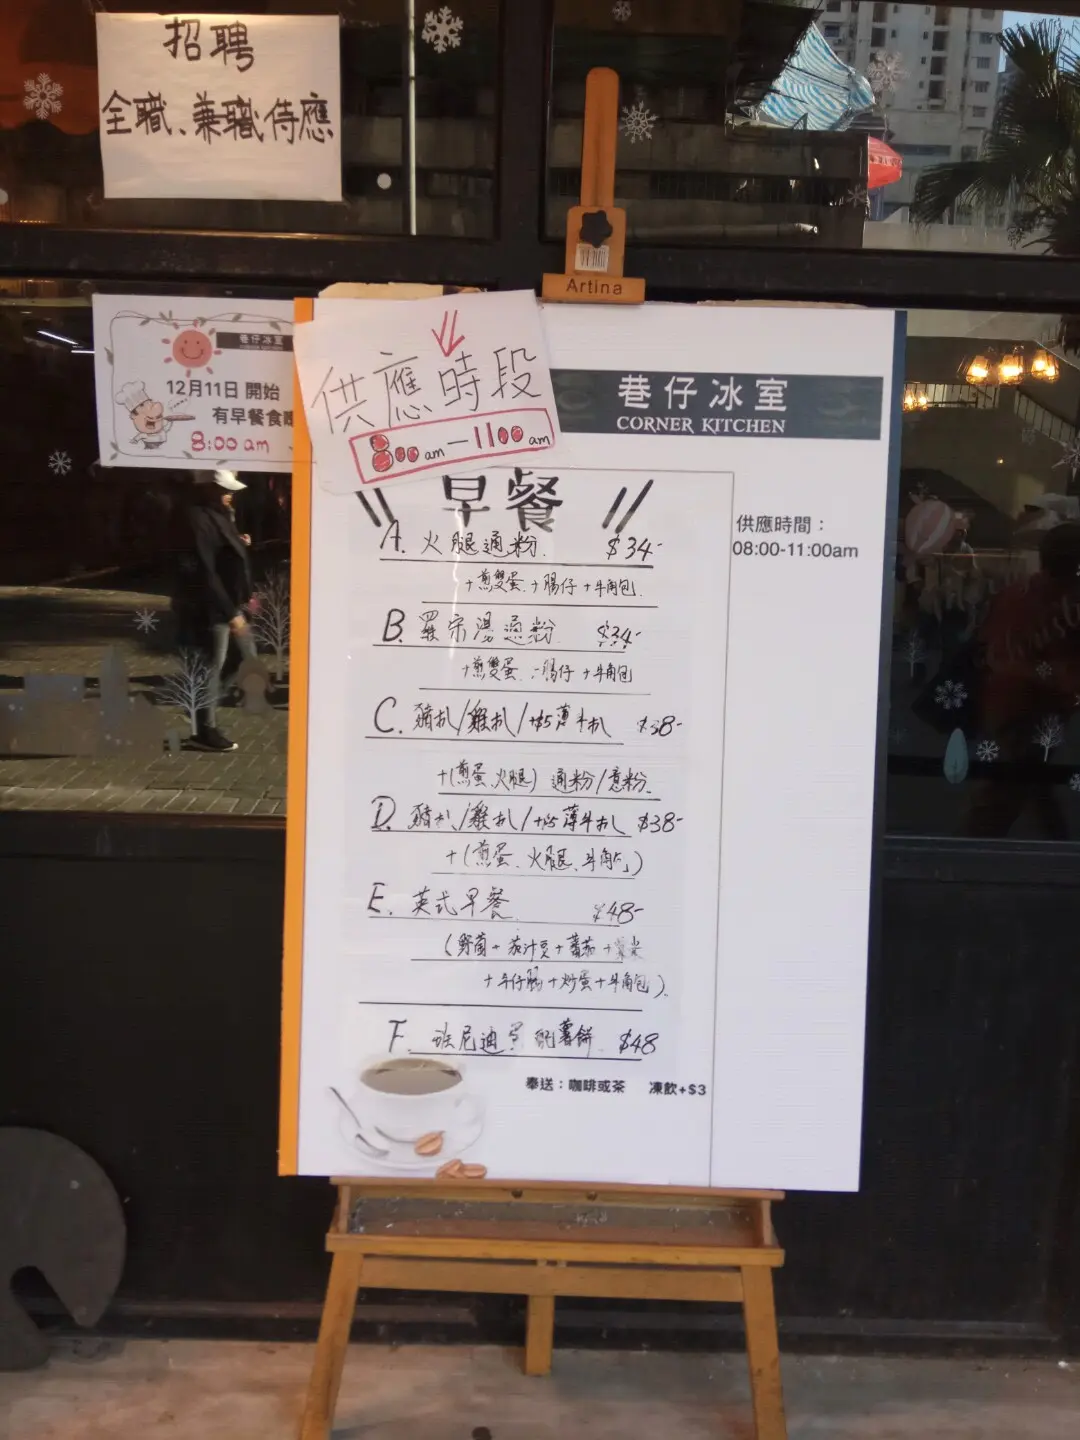 招聘
全職、兼職侍應
Artina
巷仔冰室
12月11日 開始
有早餐食
8:00 am
供應時段
8:00 am — 11:00 am
巷仔冰室
CORNER KITCHEN
早餐
供應時間：
08:00-11:00am
A. 火腿通粉 $34-
+煎雙蛋+腸仔+牛角包
B. 羅宋湯通粉 $34-
+煎雙蛋 腸仔+牛角包
C. 豬扒/雞扒/+$5薄牛扒 $38-
+(煎蛋、火腿) 通粉/意粉
D. 豬扒/雞扒/+$5薄牛扒 $38-
+(煎蛋、火腿、牛角包)
E. 英式早餐 $48-
(野菌+茄汁豆+蕃茄+
+牛仔腸+炒蛋+牛角包)
F. 班尼迪蛋配薯餅 $48
奉送：咖啡或茶 凍飲+$3